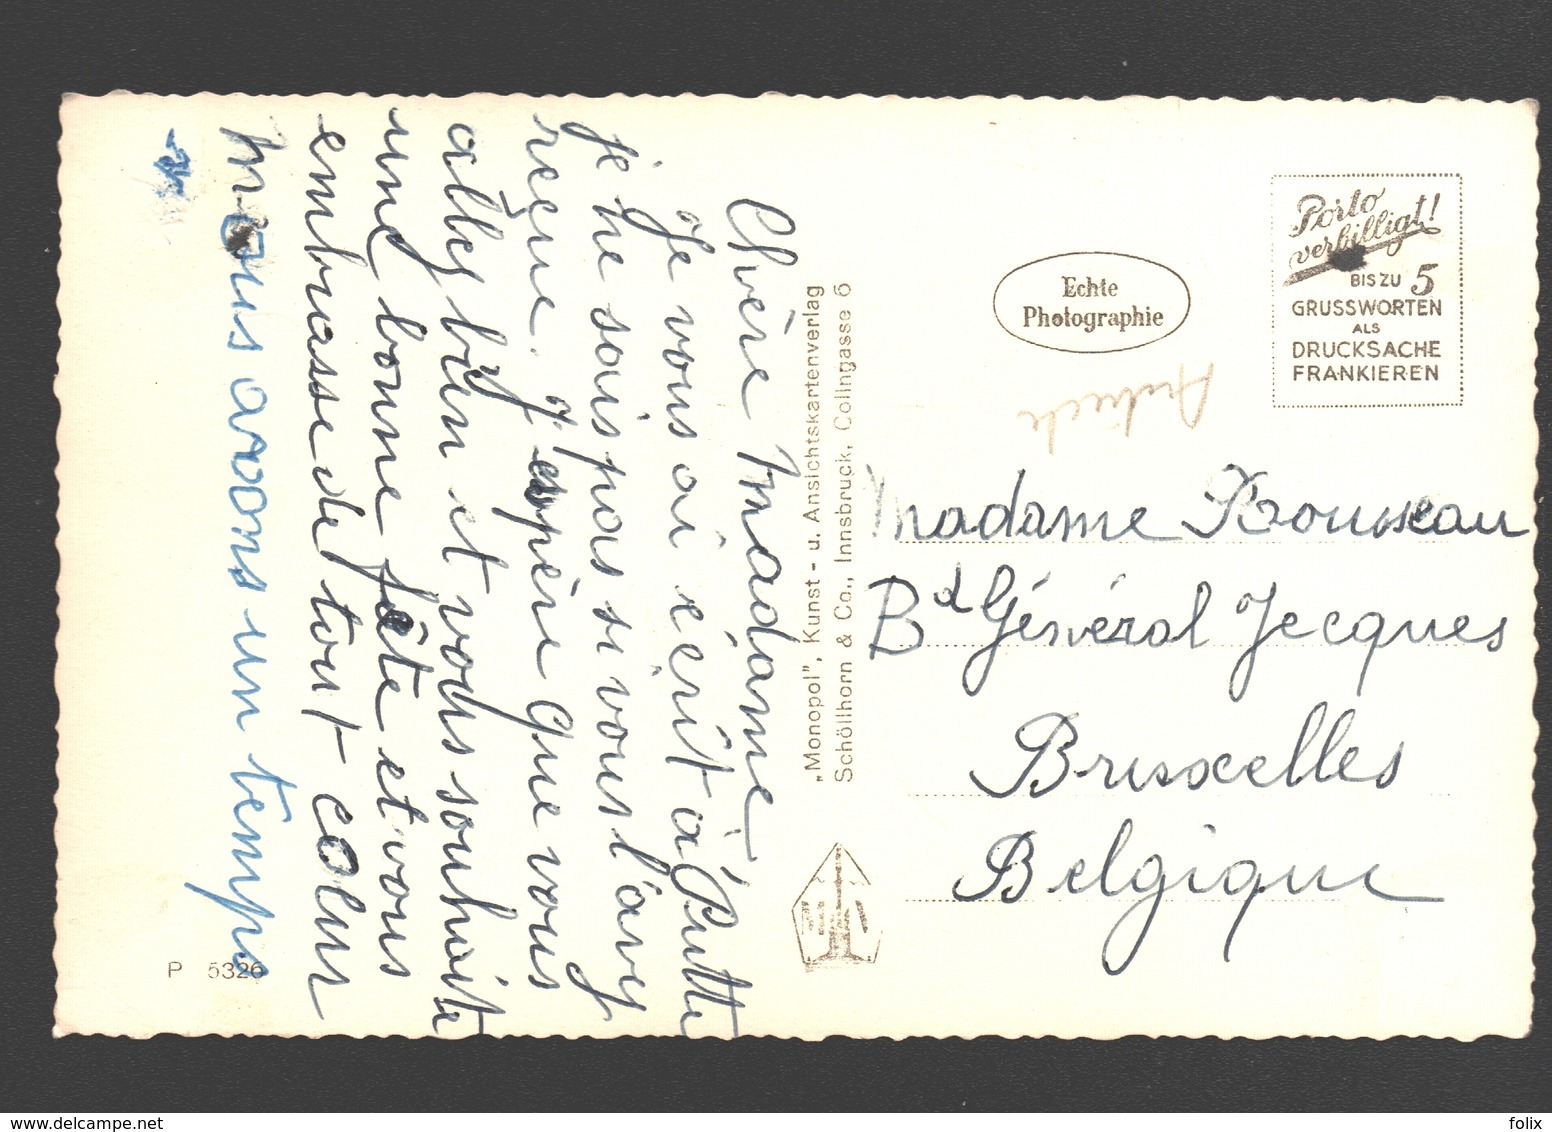 Chère Madame
Je vous ai écrit à Putte
je ne sais pas si vous l'avez
reçue. J'espère que vous
allez bien et vous souhaite
une bonne fête et vous
embrasse de tout coeur
nous avons un temps
P 5326
„Monopol”, Kunst- u. Ansichtskartenverlag
Schöllhorn & Co., Innsbruck, Collingasse 6
Echte
Photographie
Porto
verbilligt!
BIS ZU 5
GRUSSWORTEN
ALS
DRUCKSACHE
FRANKIEREN
Madame Rousseau
Bd Général Jecques
Bruxelles
Belgique
www.delcampe.net
folix